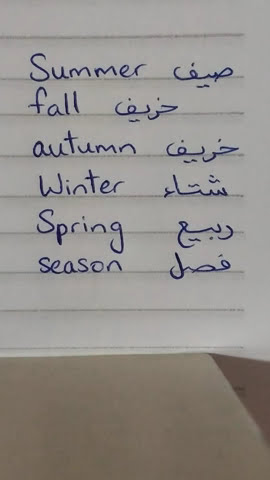 Summer صيف
fall خريف
autumn خريف
Winter شتاء
Spring ربيع
season فصل